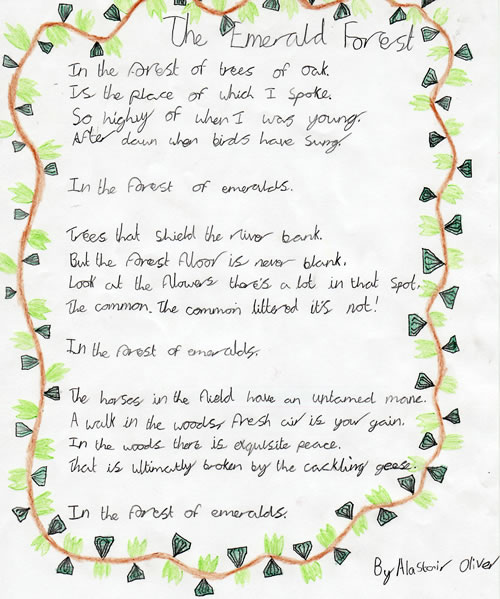 The Emerald Forest
In the forest of trees of oak.
Is the place of which I spoke.
So highly of when I was young.
After dawn when birds have sung.
In the forest of emeralds.
Trees that shield the river bank.
But the forest floor is never blank.
Look at the flowers there's a lot in that spot.
The common. The common littered it's not!
In the forest of emeralds.
The horses in the field have an untamed mane.
A walk in the woods, fresh air is your gain.
In the woods there is exquisite peace.
That is ultimatly broken by the cackling geese.
In the forest of emeralds.
By Alastair Oliver